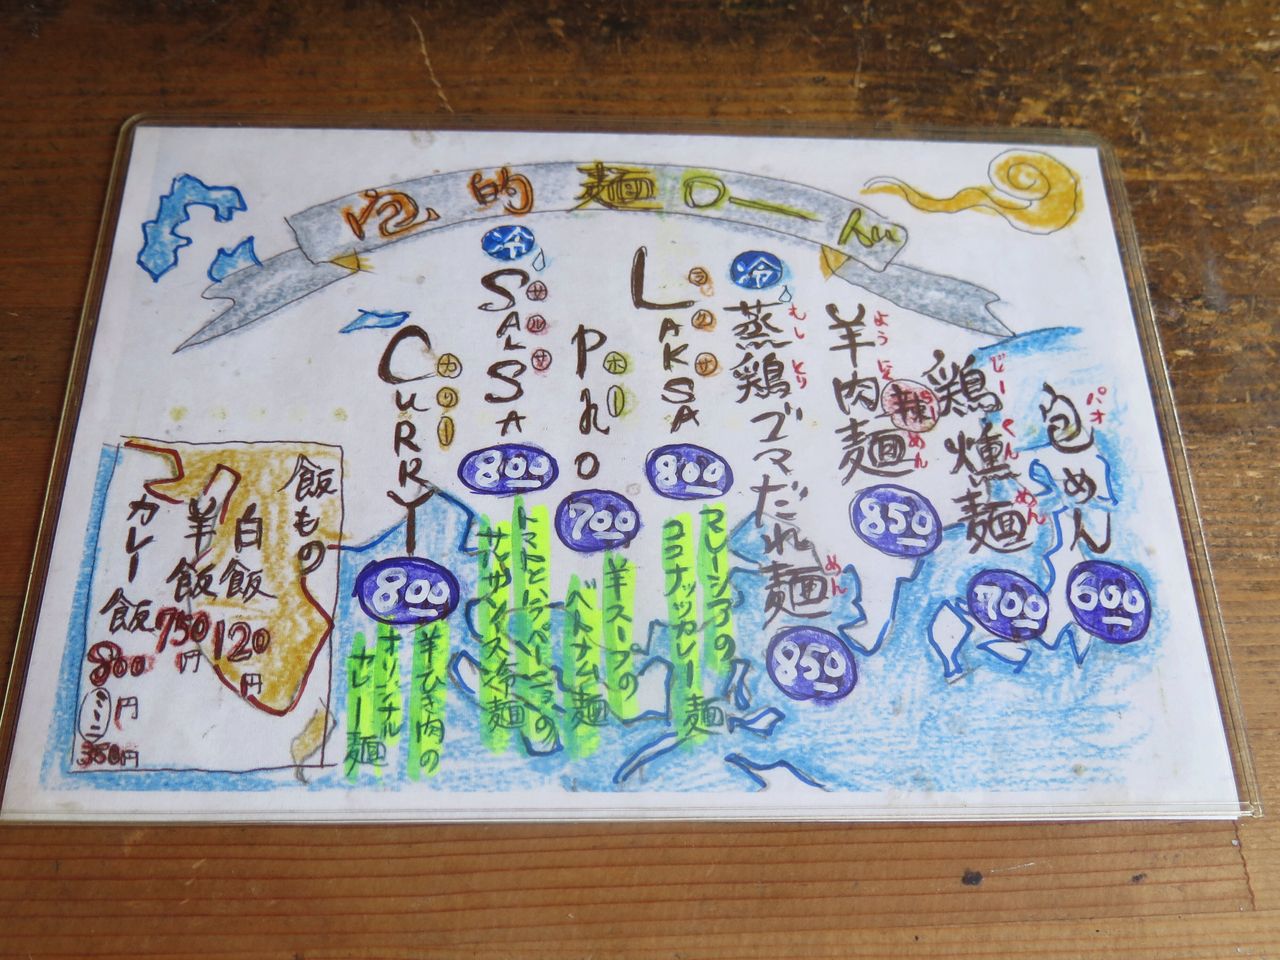 包的麺ロード
包めん
パオ
600
鶏燻麺
じーくんめん
700
羊肉辣麺
ようにくらーめん
850
冷
蒸鶏ゴマだれ麺
むしとり
めん
850
LAKSA
ラクサ
800
マレーシアの
ココナッツカレー麺
Pho
ホー
700
羊スープの
ベトナム麺
冷
SALSA
サルサ
800
トマトとハラペーニョの
サルサソース冷麺
CURRY
カリー
800
羊ひき肉の
オリジナル
カレー麺
飯もの
白飯
120円
羊飯
750円
カレー飯
800円
ミニ
350円